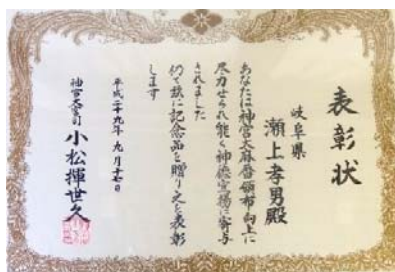 表彰状
岐阜県
瀬上孝男殿
あなたは神宮大麻暦頒布向上に
尽力せられ能く神徳宣揚に寄与
されました
仍て茲に記念品を贈り之を表彰
します
平成二十九年九月十七日
神宮大宮司 小松揮世久